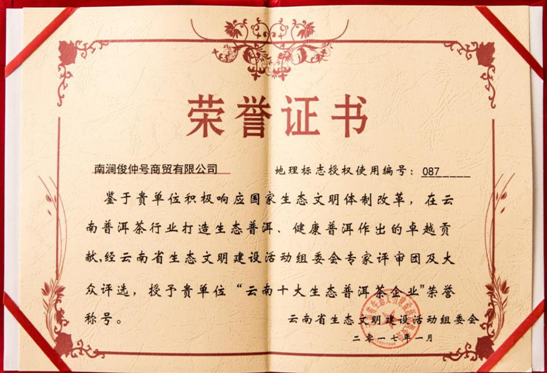 荣誉证书
南涧俊仲号商贸有限公司 地理标志授权使用编号：087
鉴于贵单位积极响应国家生态文明体制改革，在云
南普洱茶行业打造生态普洱、健康普洱作出的卓越贡
献,经云南省生态文明建设活动组委会专家评审团及大
众评选，授予贵单位“云南十大生态普洱茶企业”荣誉
称号。
云南省生态文明建设活动组委会
二零一七年一月